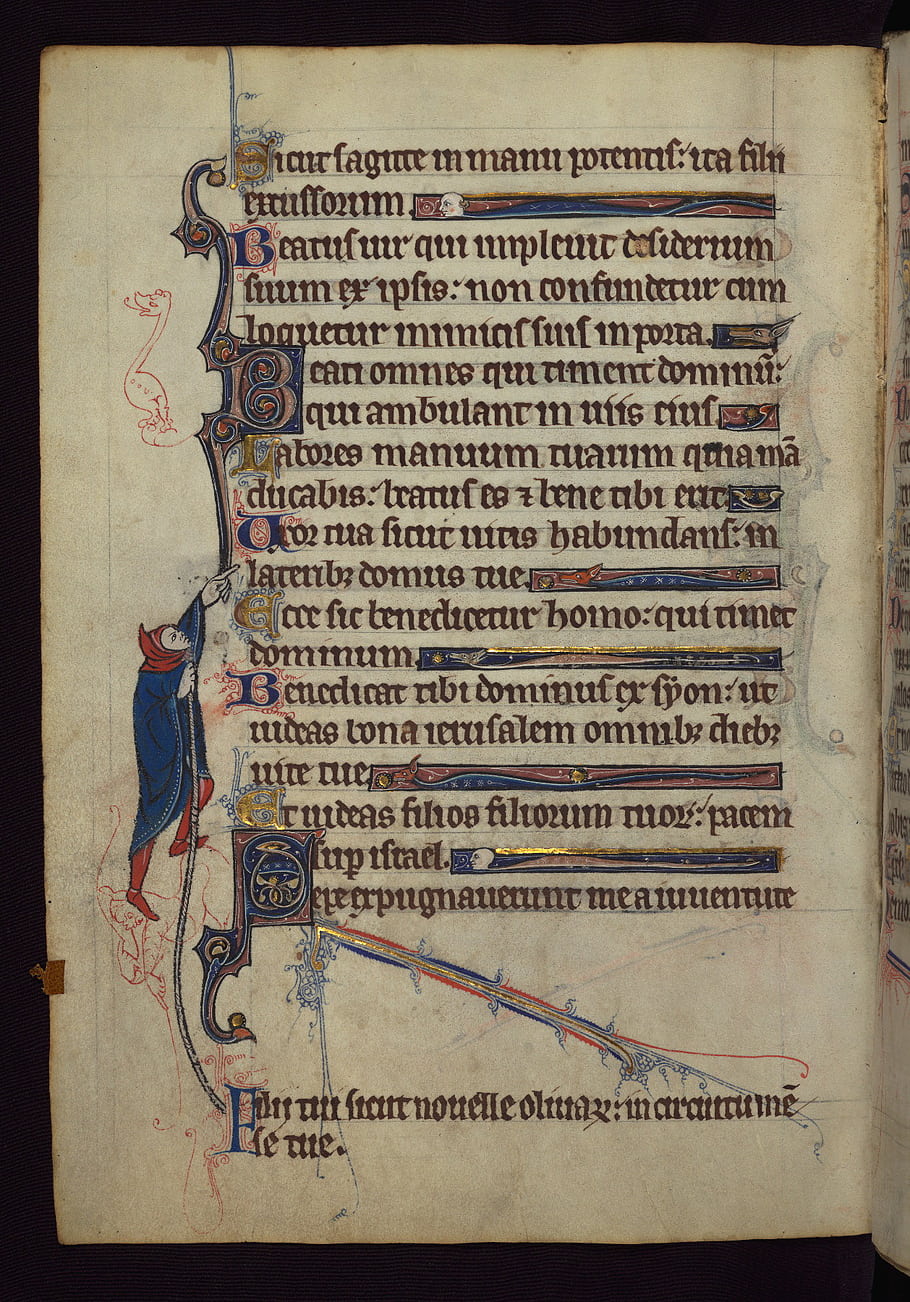 Sicut sagitte in manu potentis: ita filii
excussorum
Beatus uir qui impleuit desiderium
suum ex ipsis: non confundetur cum
loquetur inimicis suis in porta.
Beati omnes qui timent dominū:
qui ambulant in uiis eius
Labores manuum tuarum quia mā
ducabis: beatus es ⁊ bene tibi erit:
Uxor tua sicut uitis habundans: in
lateribꝫ domus tue.
Ecce sic benedicetur homo: qui timet
dominum
Benedicat tibi dominus ex syon: ut
uideas bona ierusalem omnibꝫ diebꝫ
uite tue
Et uideas filios filiorum tuoꝝ: pacem
sup israel.
Sepe expugnauerunt me a iuuentute
Filii tui sicut nouelle oliuaꝝ: in circuitu mē
se tue.